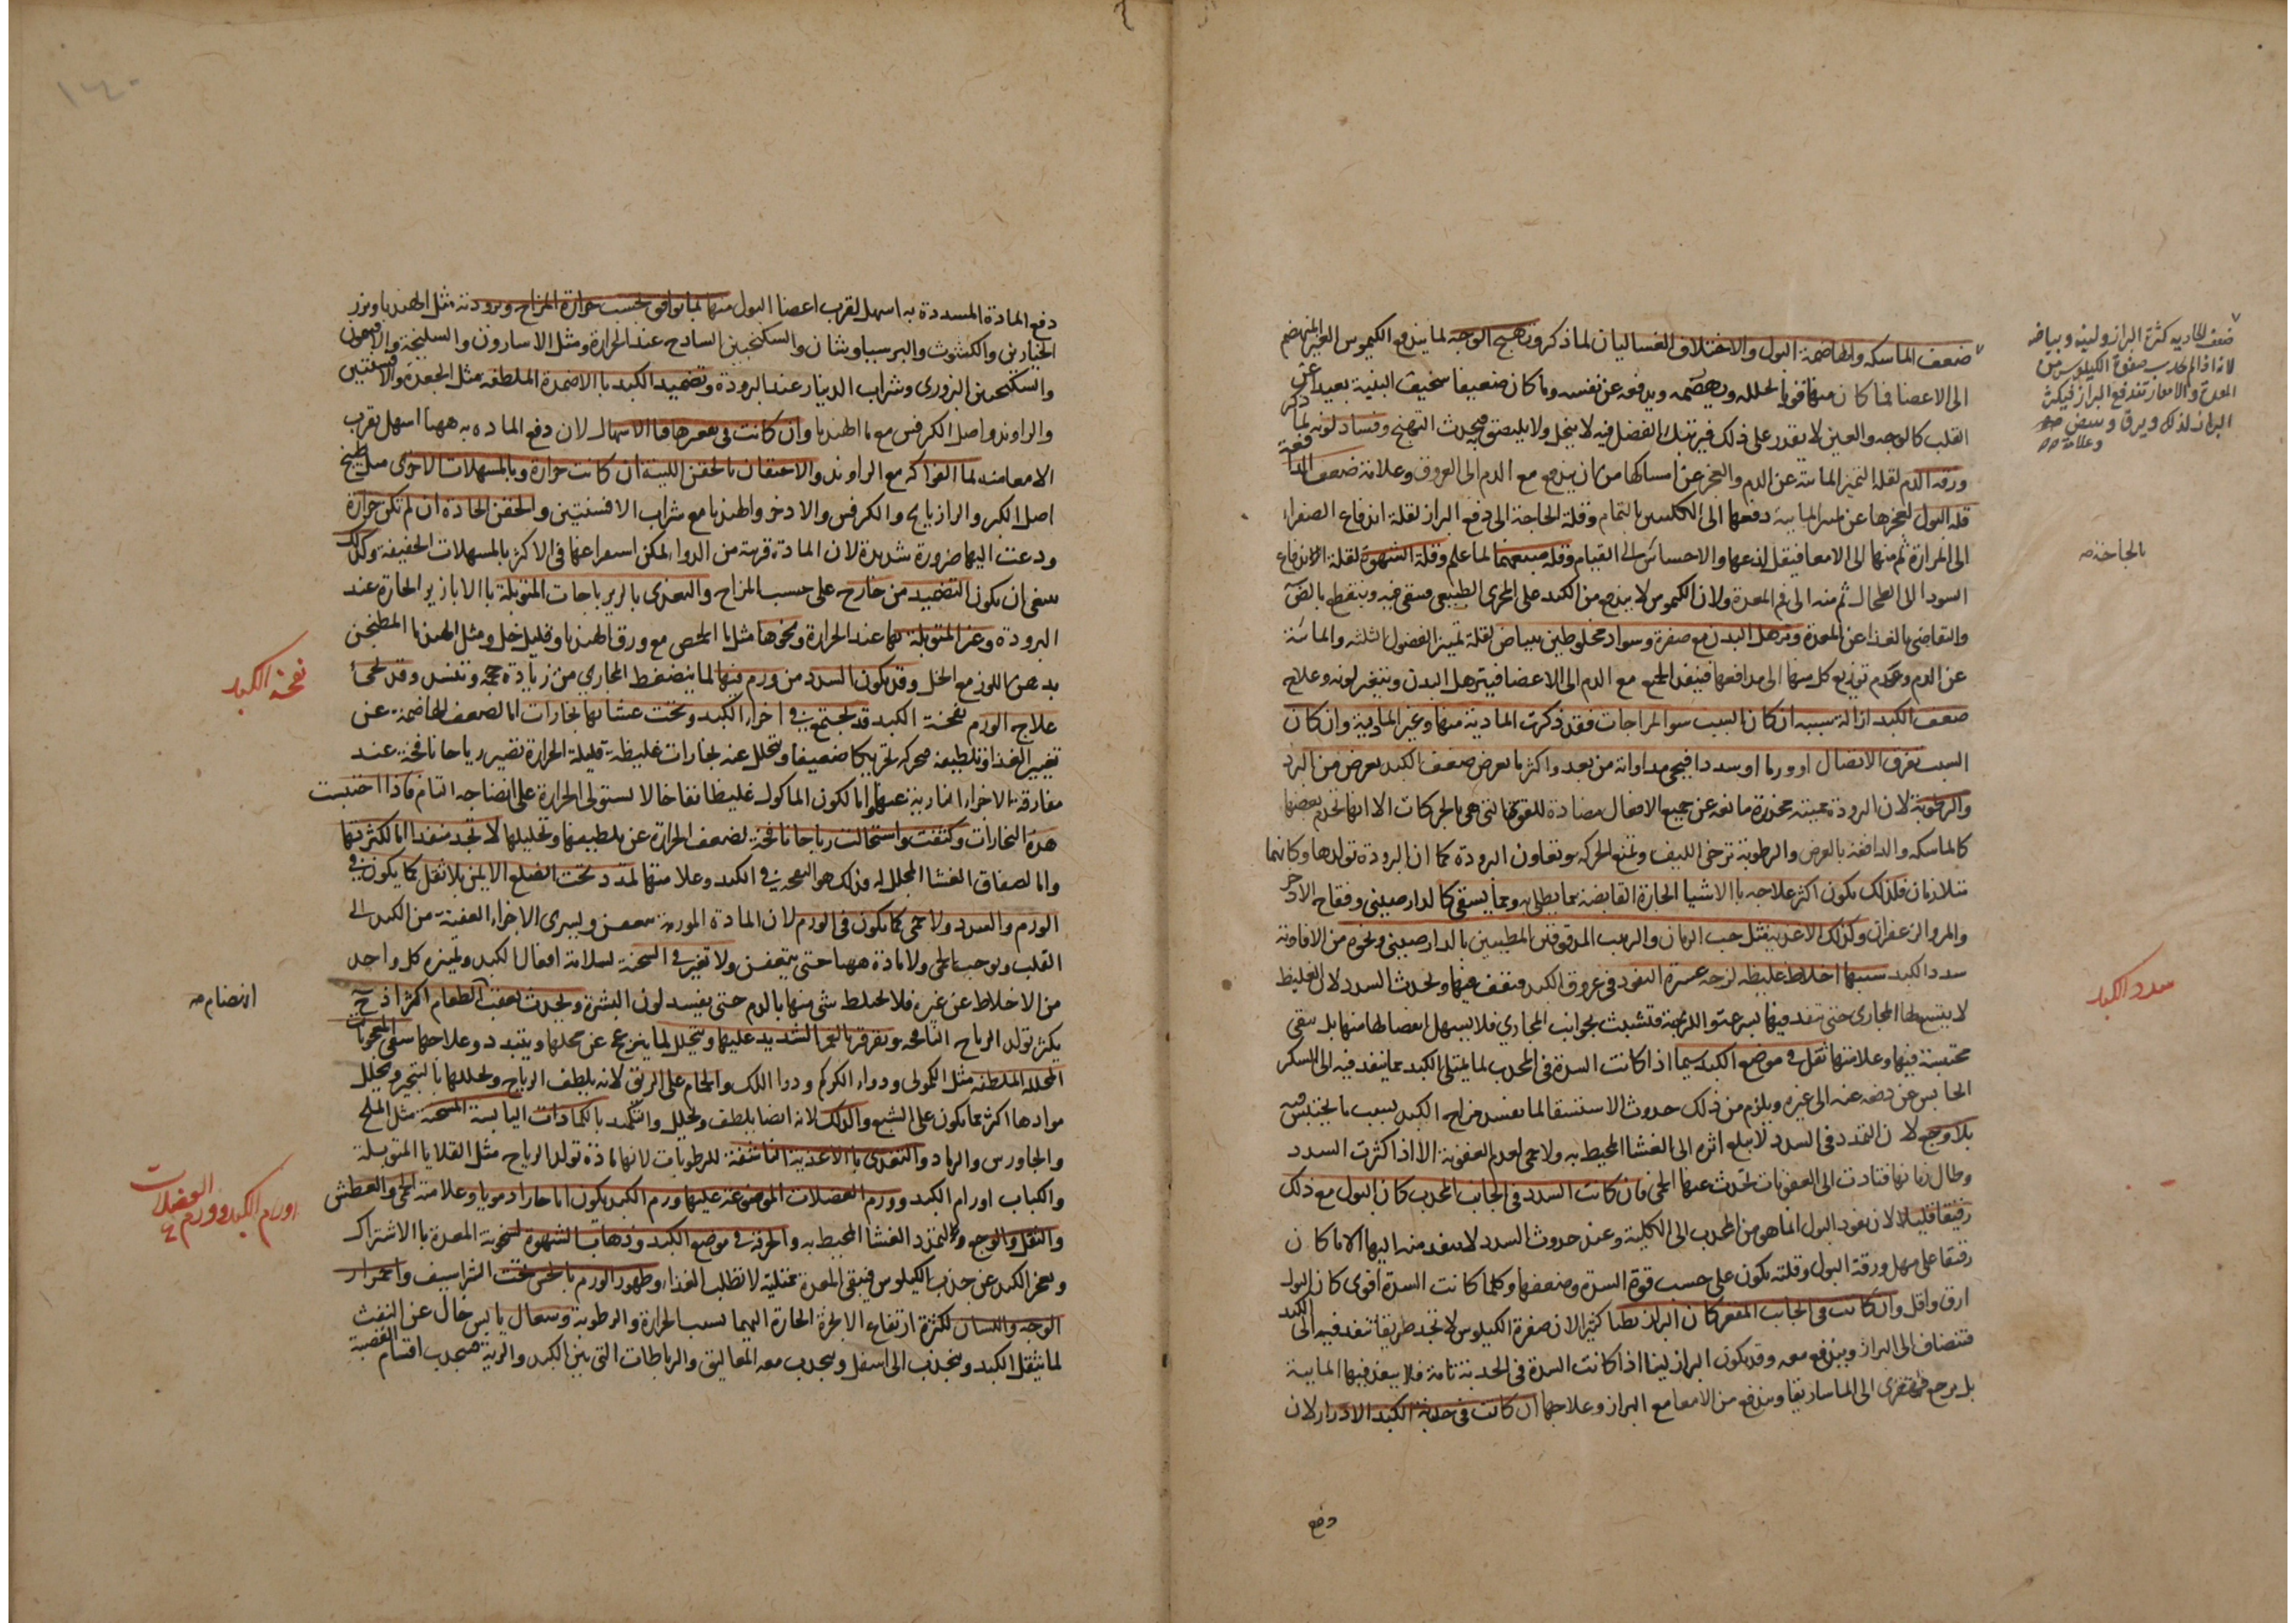 ضعف الماسكه والهاضمة البول والاختلاف الغساليان لما ذكر وتهبج الوجه لما يندفع الكيموس الغير المنهضم
الى الاعضا فما كان منها قويا يحلله ويهضمه ويدفعه عن نفسه وما كان ضعيفا سخيف البنية بعيدا عن
القلب كالوجه والعين لا يقدر على ذلك فيرتبك الفضل فيه لا ينحل ولا يلتصق فيحدث التهبج وفساد لونه لما ذكر
ورقة الدم لقلة تميز المائية عن الدم والعجز عن امساكها من ان يندفع مع الدم الى العروق وعلامة ضعف الدافعة
قلة البول لعجزها عن المائية دفعها الى الكليتين بالتمام وقلة الحاجة الى دفع البراز لقلة اندفاع الصفراء
الى المرارة ثم منها الى الامعا فيقل لذعها والاحساس الى القيام وقلة صبغهما لما علم وقلة الشهوة لقلة الاندفاع
السودا الى الطحال ثم منه الى فم المعدة ولان الكيموس لا يندفع من الكبد على المجرى الطبيعي فيبقى فيه وينقطع بالمص
والتقاضى بالغذا عن المعدة وترهل البدن مع صفرة وسواد مخلوطين ببياض لقلة تميز الفضول الثلثه والمائية
عن الدم وعدم توزيع كل منها الى مدافعها فينفذ الجميع مع الدم الى الاعضا فيترهل البدن ويتغير لونه وعلاج
ضعف الكبد ازالة سببه ان كان السبب سوء المزاجات فقد ذكرت المادية منها وغير المادية وان كان
السبب تفرق الاتصال او ورما او سددا فيجى مداواته من بعد واكثر ما يعرض ضعف الكبد يعرض من البرد
والرطوبة لان البرودة مميتة مخدرة مانعة عن جميع الافعال مضادة للقوى التى هى بالحركات الا انها تخدم بعضها
كالماسكه والدافعة بالعرض والرطوبة ترخى الليف وتمنع الحركة وتعاون البرودة كما ان البرودة تولدها وكانهما
متلازمان فلذلك يكون اكثر علاجه بالاشيا الحارة القابضة مما يطلى به ومما يسقى كالدارصينى وفقاح الاذخر
والمر والزعفران وكذلك الاغذية مثل حب الرمان والزبيب المدقوقين المطيبين بالدارصينى ونحوه من الافاوية
سدد الكبد سببها اخلاط غليظه لزجه عسرة النفود فى عروق الكبد فتقف فيها وتحدث السدد لان الغليظ
لا يتسع لها المجارى حتى تنفد فيها بسرعة واللزجة تتشبث بجوانب المجارى فلا يسهل انفصالها منها بل يبقى
محتبسة فيها وعلامتها ثقل فى موضع الكبد سيما اذا كانت السدة فى المحدب لما يمتلى الكبد مما ينفذ فيه الى السكر
الحابس عن دفعه عنه الى غيره ويلزم من ذلك حدوث الاستسقا لما يفسد مزاج الكبد بسبب ما يحتبس فيه
بلا وجع لان التمدد فى السدد لا يبلغ اثره الى الغشا المحيط به ولا حمى لعدم العفونة الا اذا كثرت السدد
وطال زمانها فتادت الى العفونات تحدث عنها الحمى فان كانت السدد فى الجانب المحدب كان البول مع ذلك
رقيقا قليلا لان نفود البول انما هو من المحدب الى الكلية وعند حدوث السدد لا ينفد منه اليها الا ما كان
رقيقا على مهل ورقة البول وقلته يكون على حسب قوة السدة وضعفها وكلما كانت السدة اقوى كان البول
ارق واقل وان كانت فى الجانب المقعر كان البراز رطبا كثيرا لان صفرة الكيلوس لا تجد طريقا تنفد فيه الى الكبد
فتنضاف الى البراز ويندفع معه وقد يكون البراز لينا اذا كانت السدة فى الحدبة تامة فلا ينفذ فيها المائية
بل يرجع قهقرى الى الماساريقا ويندفع من الامعا مع البراز وعلاجها ان كانت فى حدبة الكبد الادرار لان
دفع
ضعف الجاذبه كثرة البراز ولينه وبياضه
لانه اذا لم يجذب صفوة الكيلوس من
المعدة والامعا تندفع البراز فيكثر
البراز لذلك ويرق
وعلامة صح
بالحاجة صح
سدد الكبد
دفع المادة المسددة به اسهل لقرب اعضا البول منها بما يوافق بحسب حرارة المزاج وبرودته مثل الهندبا وبزر
الخيارين والكشوث والبرسياوشان والسكنجبين السادج عند الحرارة ومثل الاسارون والسليخة والافيمون
والسكنجبين البزورى وشراب الدينار عند البرودة وتضميد الكبد بالاضمدة الملطفة مثل الجعدة والافسنتين
والراوند واصل الكرفس مع ماء الهندبا وان كانت فى مقعرها فالاسهال لان دفع الماده به ههنا اسهل لقرب
الامعا منه بماء الفواكه مع الراوند والاحتقان بالحقن اللينة ان كانت حرارة وبالمسهلات الاخرى مثل طبيخ
اصل الكبر والرازيانج والكرفس والاذخر والهندبا مع شراب الافسنتين والحقن الحادة ان لم تكن حرارة
ودعت اليها ضرورة شديدة لان المادة قريبة من الدواء يمكن استفراغها فى الاكثر بالمسهلات الخفيفة وكذلك
ينبغى ان يكون التضميد من خارج على حسب المزاج والتغذى بالزيرباجات المتوبلة بالابازير الحارة عند
البرودة وغير المتوبلة بها عند الحرارة ونحوها مثل ماء الحمص مع ورق الهندبا وقليل خل ومثل الهندبا المطجن
بدهن اللوز مع الخل وقد يكون السدد من ورم فيها لما ينضغط المجارى من زيادة حجمه وتنسد وقد يجئ
علاج الورم نفخة الكبد قد يجتمع فى اجزاء الكبد وتحت غشائها بخارات اما لضعف الهاضمة عن
تغيير الغذا وتلطيفه فتحركه تحريكا ضعيفا ويتحلل عنه بخارات غليظة قليلة الحرارة تصير رياحا نافخة عند
مفارقة الاجزاء النارية عنها واما لكون الماكول غليظا نفاخا لا يستولى الحرارة على انضاجه التام فاذا احتبست
هذه البخارات وكثفت واستحالت رياحا نافخة لضعف الحرارة عن تلطيفها وتحليلها لا تجد منفذا اما لكثرتها
واما لصفاق الغشا المجلل له فذلك هو النفخة فى الكبد وعلامتها تمدد تحت الضلع الايمن بلا ثقل كما يكون فى
الورم والسدد ولا حمى كما يكون فى الورم لان المادة المورمة تتعفن ويسرى الاجزاء العفنة من الكبد الى
القلب ويوجب الحمى ولا مادة ههنا حتى يتعفن ولا تغير فى السحنة لسلامة افعال الكبد وتميزه كل واحد
من الاخلاط عن غيره فلا يختلط شى منها بالدم حتى يفسد لون البشرة ويحدث عقب الطعام اكثر اذ ح
يكثر تولد الرياح النافخة وتقرقر بالغمز الشديد عليها ويتحلل لما ينزعج عن محلها ويتبدد وعلاجها سقى المعجونات
المحللة الملطفة مثل الكمونى ودواء الكركم ودوا اللك والحمام على الريق لانه يلطف الرياح ويحللها بالتبخير ويحلل
موادها اكثر مما يكون على الشبع والدلك لانه ايضا يلطف ويحلل والتكميد بالكمادات اليابسة المسخنة مثل الملح
والجاورس والرماد والتغذى بالاغذية الناشفة للرطوبات لانها مادة تولد الرياح مثل القلايا المتوبلة
والكباب اورام الكبد وورم العضلات الموضوعة عليها ورم الكبد يكون اما حارا دمويا وعلامته الحمى والعطش
والثقل والوجع لتمدد الغشا المحيط به والحرقة فى موضع الكبد وذهاب الشهوة لسخونة المعدة بالاشتراك
وعجز الكبد عن جذب الكيلوس فيبقى المعدة ممتلئة لا تطلب الغذاء وظهور الورم بالحس تحت الشراسيف واحمرار
الوجه واللسان لكثرة ارتفاع الابخرة الحارة اليهما لسبب الحرارة والرطوبة وسعال يابس خال عن النفث
لما يثقل الكبد وينجذب الى اسفل وينجذب معه المعاليق والرباطات التى بين الكبد والرية فينجذب اقسام القصبة
نفخة الكبد
انضام صح
اورام الكبد وورم العضلات
١٤٠